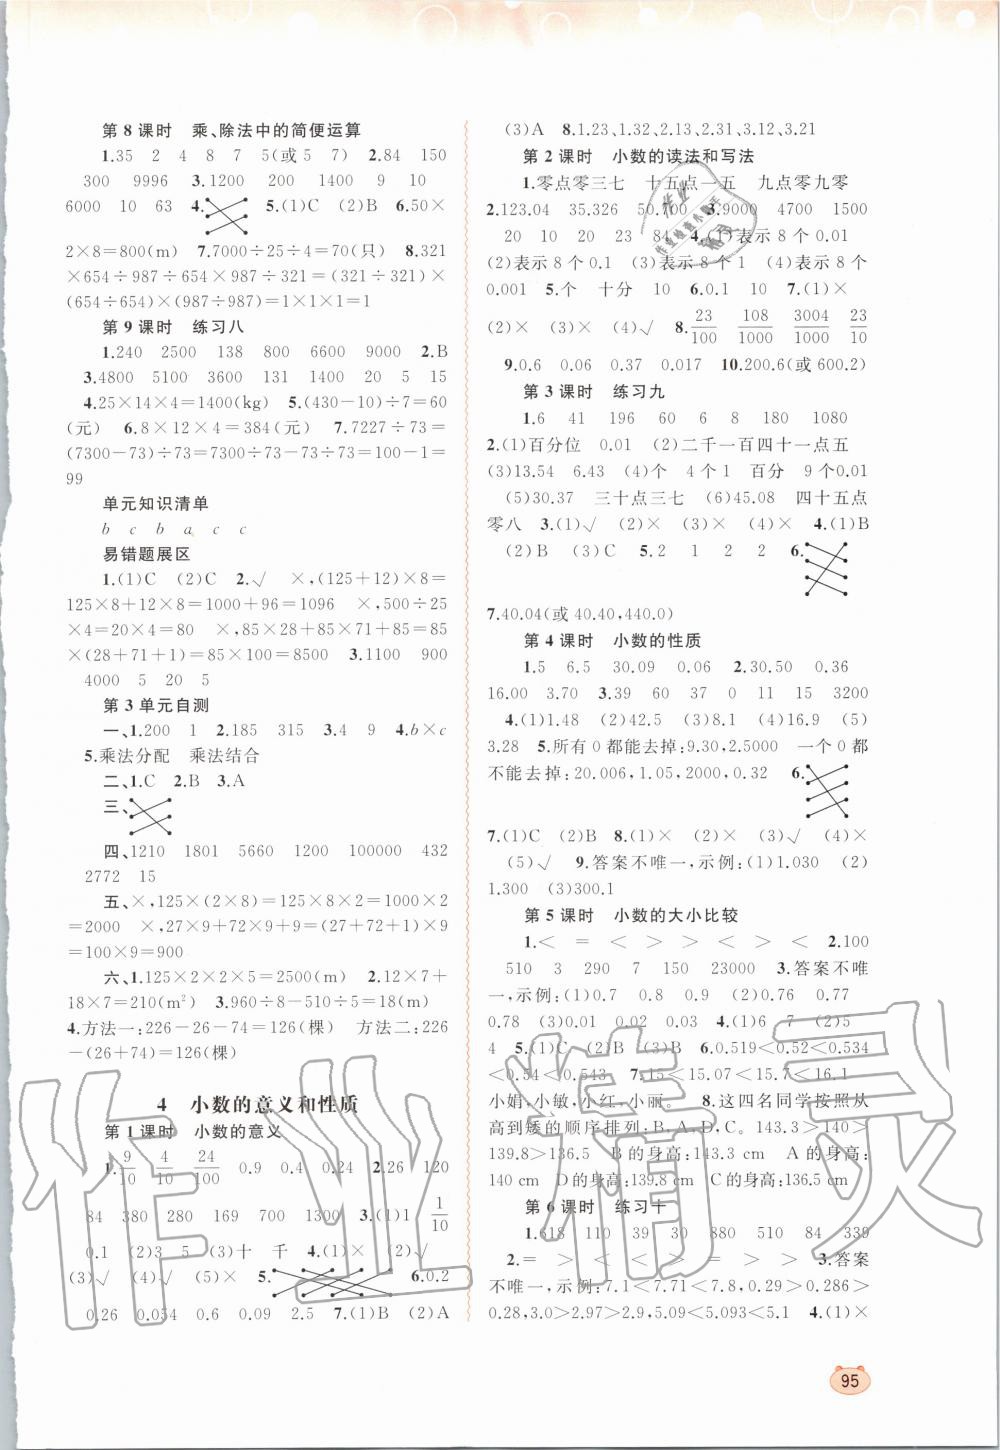 第8课时 乘、除法中的简便运算
1.35 2 4 8 7 5(或5 7) 2.84 150
300 9996 3.1200 200 1400 9 10
6000 10 63 4. 5.(1)C (2)B 6.50×
2×8=800(m) 7.7000÷25÷4=70(只) 8.321
×654÷987÷654×987÷321=(321÷321)×
(654÷654)×(987÷987)=1×1×1=1
第9课时 练习八
1.240 2500 138 800 6600 9000 2.B
3.4800 5100 3600 131 1400 20 5 15
4.25×14×4=1400(kg) 5.(430-10)÷7=60
(元) 6.8×12×4=384(元) 7.7227÷73=
(7300-73)÷73=7300÷73-73÷73=100-1=
99
单元知识清单
b c b a c c
易错题展区
1.(1)C (2)C 2.√ ×,(125+12)×8=
125×8+12×8=1000+96=1096 ×,500÷25
×4=20×4=80 ×,85×28+85×71+85=85
×(28+71+1)=85×100=8500 3.1100 900
4000 5 20 5
第3单元自测
一、1.200 1 2.185 315 3.4 9 4.b×c
5.乘法分配 乘法结合
二、1.C 2.B 3.A
三、
四、1210 1801 5660 1200 100000 432
2772 15
五、×,125×(2×8)=125×8×2=1000×2
=2000 ×,27×9+72×9+9=(27+72+1)×9
=100×9=900
六、1.125×2×2×5=2500(m) 2.12×7+
18×7=210(m²) 3.960÷8-510÷5=18(m)
4.方法一:226-26-74=126(棵) 方法二:226
-(26+74)=126(棵)
4 小数的意义和性质
第1课时 小数的意义
1.9/10 4/10 24/100 0.9 0.4 0.24 2.26 120
84 380 280 169 700 1300 3.(1)1 1/10
0.1 (2)3 5 (3)十 千 4.(1)× (2)√
(3)√ (4)√ (5)× 5. 6.0.2
0.26 0.054 0.6 0.09 2.5 7.(1)B (2)A
(3)A 8.1.23,1.32,2.13,2.31,3.12,3.21
第2课时 小数的读法和写法
1.零点零三七 十五点一五 九点零九零
2.123.04 35.326 50.700 3.9000 4700 1500
20 10 20 23 84 4.(1)表示8个0.01
(2)表示8个0.1 (3)表示8个1 (4)表示8个
0.001 5.个 十分 10 6.0.1 10 7.(1)×
(2)× (3)× (4)√ 8.23/100 108/1000 3004/1000 23/10
9.0.6 0.06 0.37 0.017 10.200.6(或600.2)
第3课时 练习九
1.6 41 196 60 6 8 180 1080
2.(1)百分位 0.01 (2)二千一百四十一点五
(3)13.54 6.43 (4)个 4个1 百分 9个0.01
(5)30.37 三十点三七 (6)45.08 四十五点
零八 3.(1)√ (2)× (3)× (4)× 4.(1)B
(2)B (3)C 5.2 1 2 2 6.
7.40.04(或40.40,440.0)
第4课时 小数的性质
1.5 6.5 30.09 0.06 2.30.50 0.36
16.00 3.70 3.39 60 37 0 11 15 3200
4.(1)1.48 (2)42.5 (3)8.1 (4)16.9 (5)
3.28 5.所有0都能去掉:9.30,2.5000 一个0都
不能去掉:20.006,1.05,2000,0.32 6.
7.(1)C (2)B 8.(1)× (2)× (3)√ (4)×
(5)√ 9.答案不唯一,示例:(1)1.030 (2)
1.300 (3)300.1
第5课时 小数的大小比较
1.< = < > > < > < 2.100
510 3 290 7 150 23000 3.答案不唯
一,示例:(1)0.7 0.8 0.9 (2)0.76 0.77
0.78 (3)0.01 0.02 0.03 4.(1)6 7 (2)5
4 5.(1)C (2)B (3)B 6.0.519<0.52<0.534
<0.54<0.543 7.15<15.07<15.7<16.1
小娟,小敏,小红,小丽。 8.这四名同学按照从
高到矮的顺序排列:B,A,D,C。143.3>140>
139.8>136.5 B的身高:143.3 cm A的身高:
140 cm D的身高:139.8 cm C的身高:136.5 cm
第6课时 练习十
1.618 110 39 30 880 510 84 339
2.= > < > < > > 3.答案
不唯一,示例:7.1<7.71<7.8,0.29>0.286>
0.28,3.0>2.97>2.9,5.09<5.093<5.1 4.(1)×
95
作业精灵